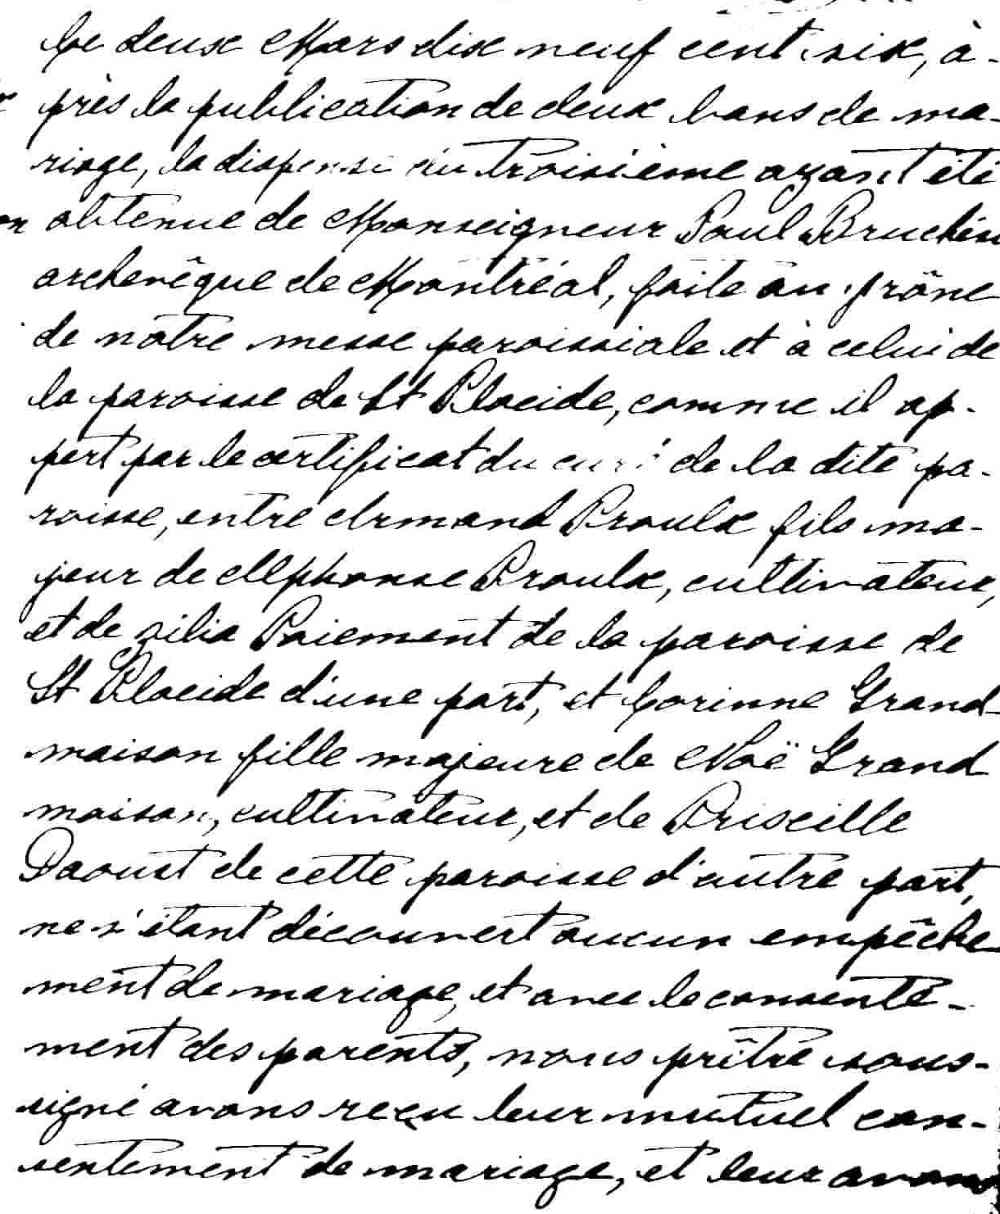 Ce deux Mars dix neuf cent six, a-
près la publication de deux bans de ma-
riage, la dispense du troisième ayant été
obtenue de Monseigneur Paul Bruchési
archevêque de Montréal, faite au prône
de notre messe paroissiale et à celui de
la paroisse de St Placide, comme il ap-
pert par le certificat du curé de la dite pa-
roisse, entre Armand Proulx fils ma-
jeur de Alphonse Proulx, cultivateur,
et de Zilia Paiement de la paroisse de
St Placide d'une part, et Corinne Grand-
maison fille majeure de Noë Grand
maison, cultivateur, et de Priscille
Daoust de cette paroisse d'autre part,
ne s'étant découvert aucun empêche
ment de mariage, et avec le consente-
ment des parents, nous prêtre sous-
signé avons reçu leur mutuel con-
sentement de mariage, et leur avons